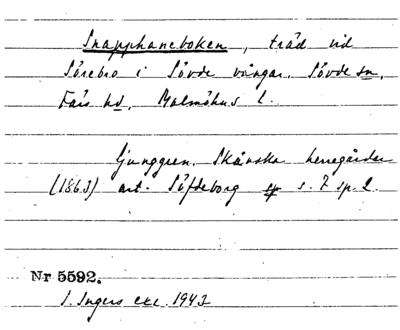 Snapphaneboken, träd vid
Sörebro i Sövde vångar. Sövde sn,
Färs hd, Malmöhus l.
Ljunggren. Skånska herregårdar
(1863) art. Söfdeborg s. 7 sp. 2.
Nr 5592.
I. Ingers exc. 1943